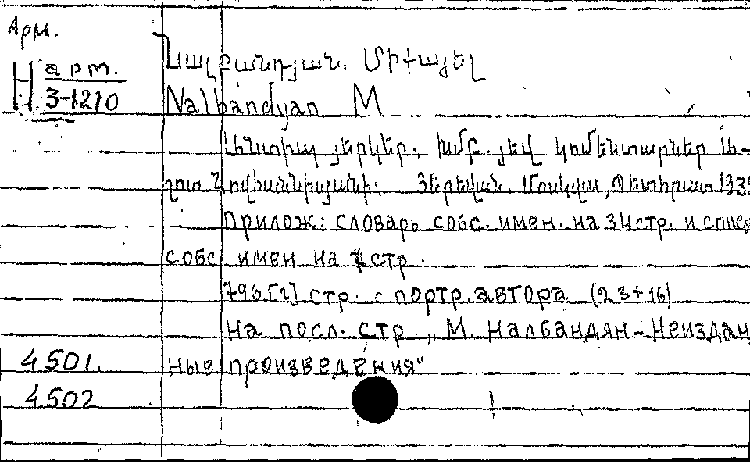 Арм.
Н арт.
3-1210
Նալբանդյան. Միքայել
Nalbandyan M
Անտիպ յերկեր. խմբ. յեվ կոմենտարներ Ա-
շոտ Հովհաննիսյանի. Յերեվան. Մոսկվա,
Прилож: словарь собс. имен. на 34 стр. и спис
собс имен на стр.
796.[2] стр. с портр. автора (23+16)
На посл. стр „М. Налбандян-Неиздан
ные произведения“
4501.
4502